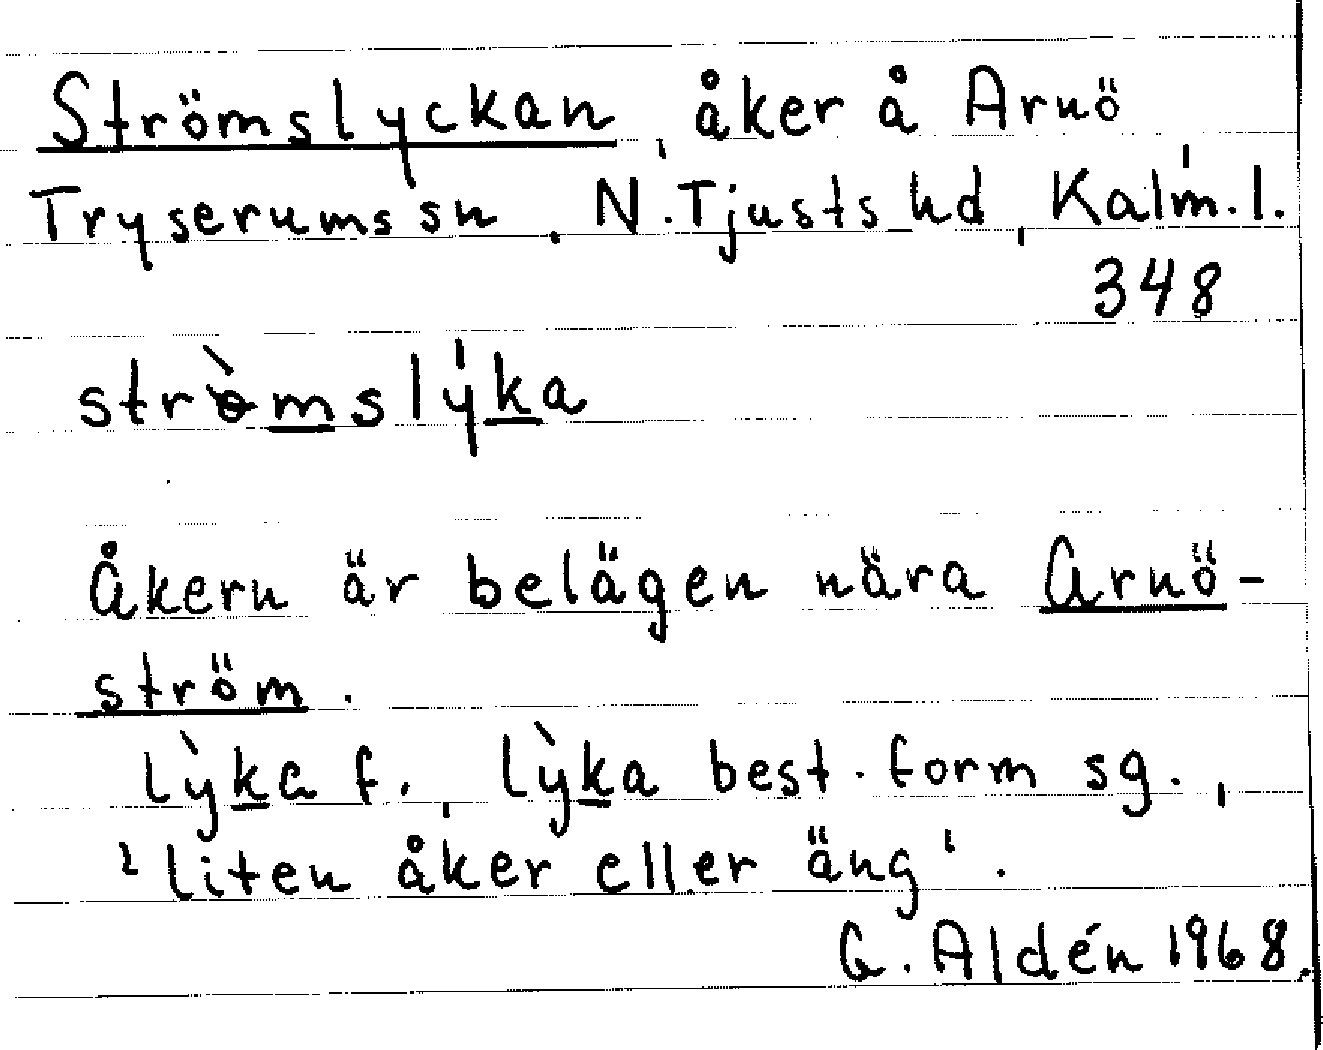 Strömslyckan, åker å Arnö
Tryserums sn, N. Tjusts hd, Kalm. l.
348
strɵ̀mslýka
Åkern är belägen nära Arnö-
ström.
lỳka f., lỳka best. form sg.,
'liten åker eller äng'.
G. Aldén 1968.